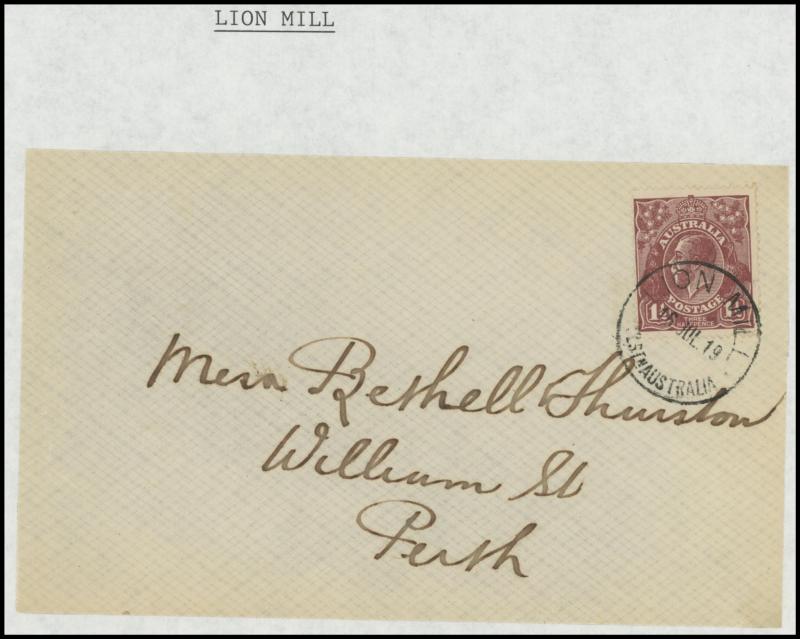 LION MILL
AUSTRALIA
POSTAGE
THREE
HALFPENCE
ON MILL
JUL 19
AUSTRALIA
Bethell Thurston
William St
Perth